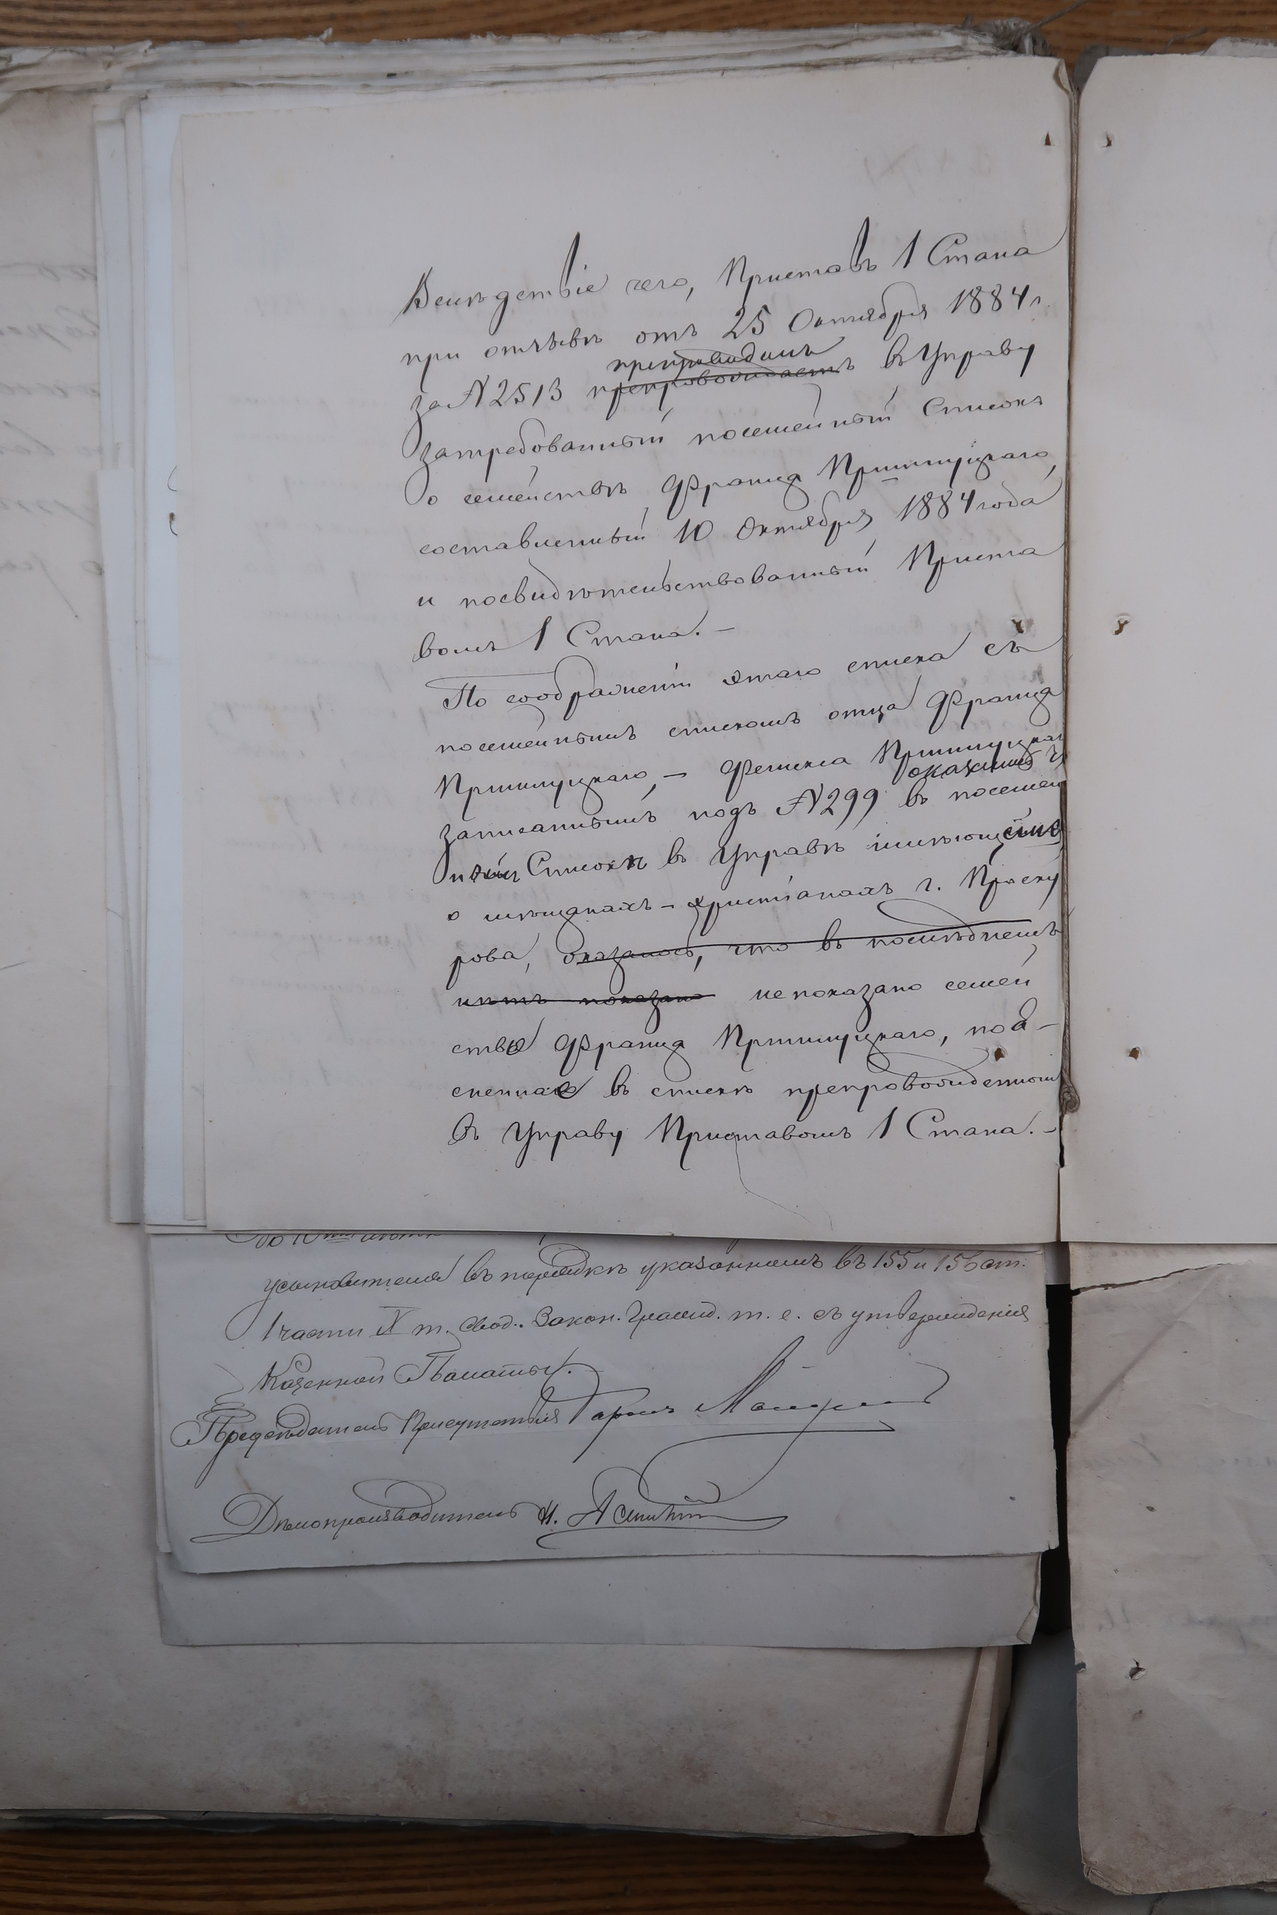 Вслѣдствіе чего, Приставъ 1 Стана
при отзывѣ отъ 25 Октября 1884 г.
за № 2513 препроводилъ въ Управу
затребованный посемейный списокъ
о семействѣ Франца Пршилуцкаго,
составленный 10 Октября 1884 года
и посвидѣтельствованный Приста
вомъ 1 Стана. —
По соображеніи этаго списка съ
посемейнымъ спискомъ отца Франца
Пршилуцкаго, — Феликса Пршилуцкаго
записаннымъ подъ № 299 въ посемей
номъ Спискѣ въ Управѣ имѣющемся
о мѣщанахъ – христіанахъ г. Проску
рова, оказалось, что въ послѣднемъ
нѣтъ показано не показано семей
ство Франца Пршилуцкаго, поя–
сненное въ спискѣ препровожденномъ
въ Управу Приставомъ 1 Стана. —
усыновителя въ порядкѣ указанномъ въ 155 и 156 ст.
1 части X т. Свод. Закон. Гражд. т. е. съ утвержденія
Казенной Палаты.
Предсѣдатель Присутствія Баронъ
Дѣлопроизводитель